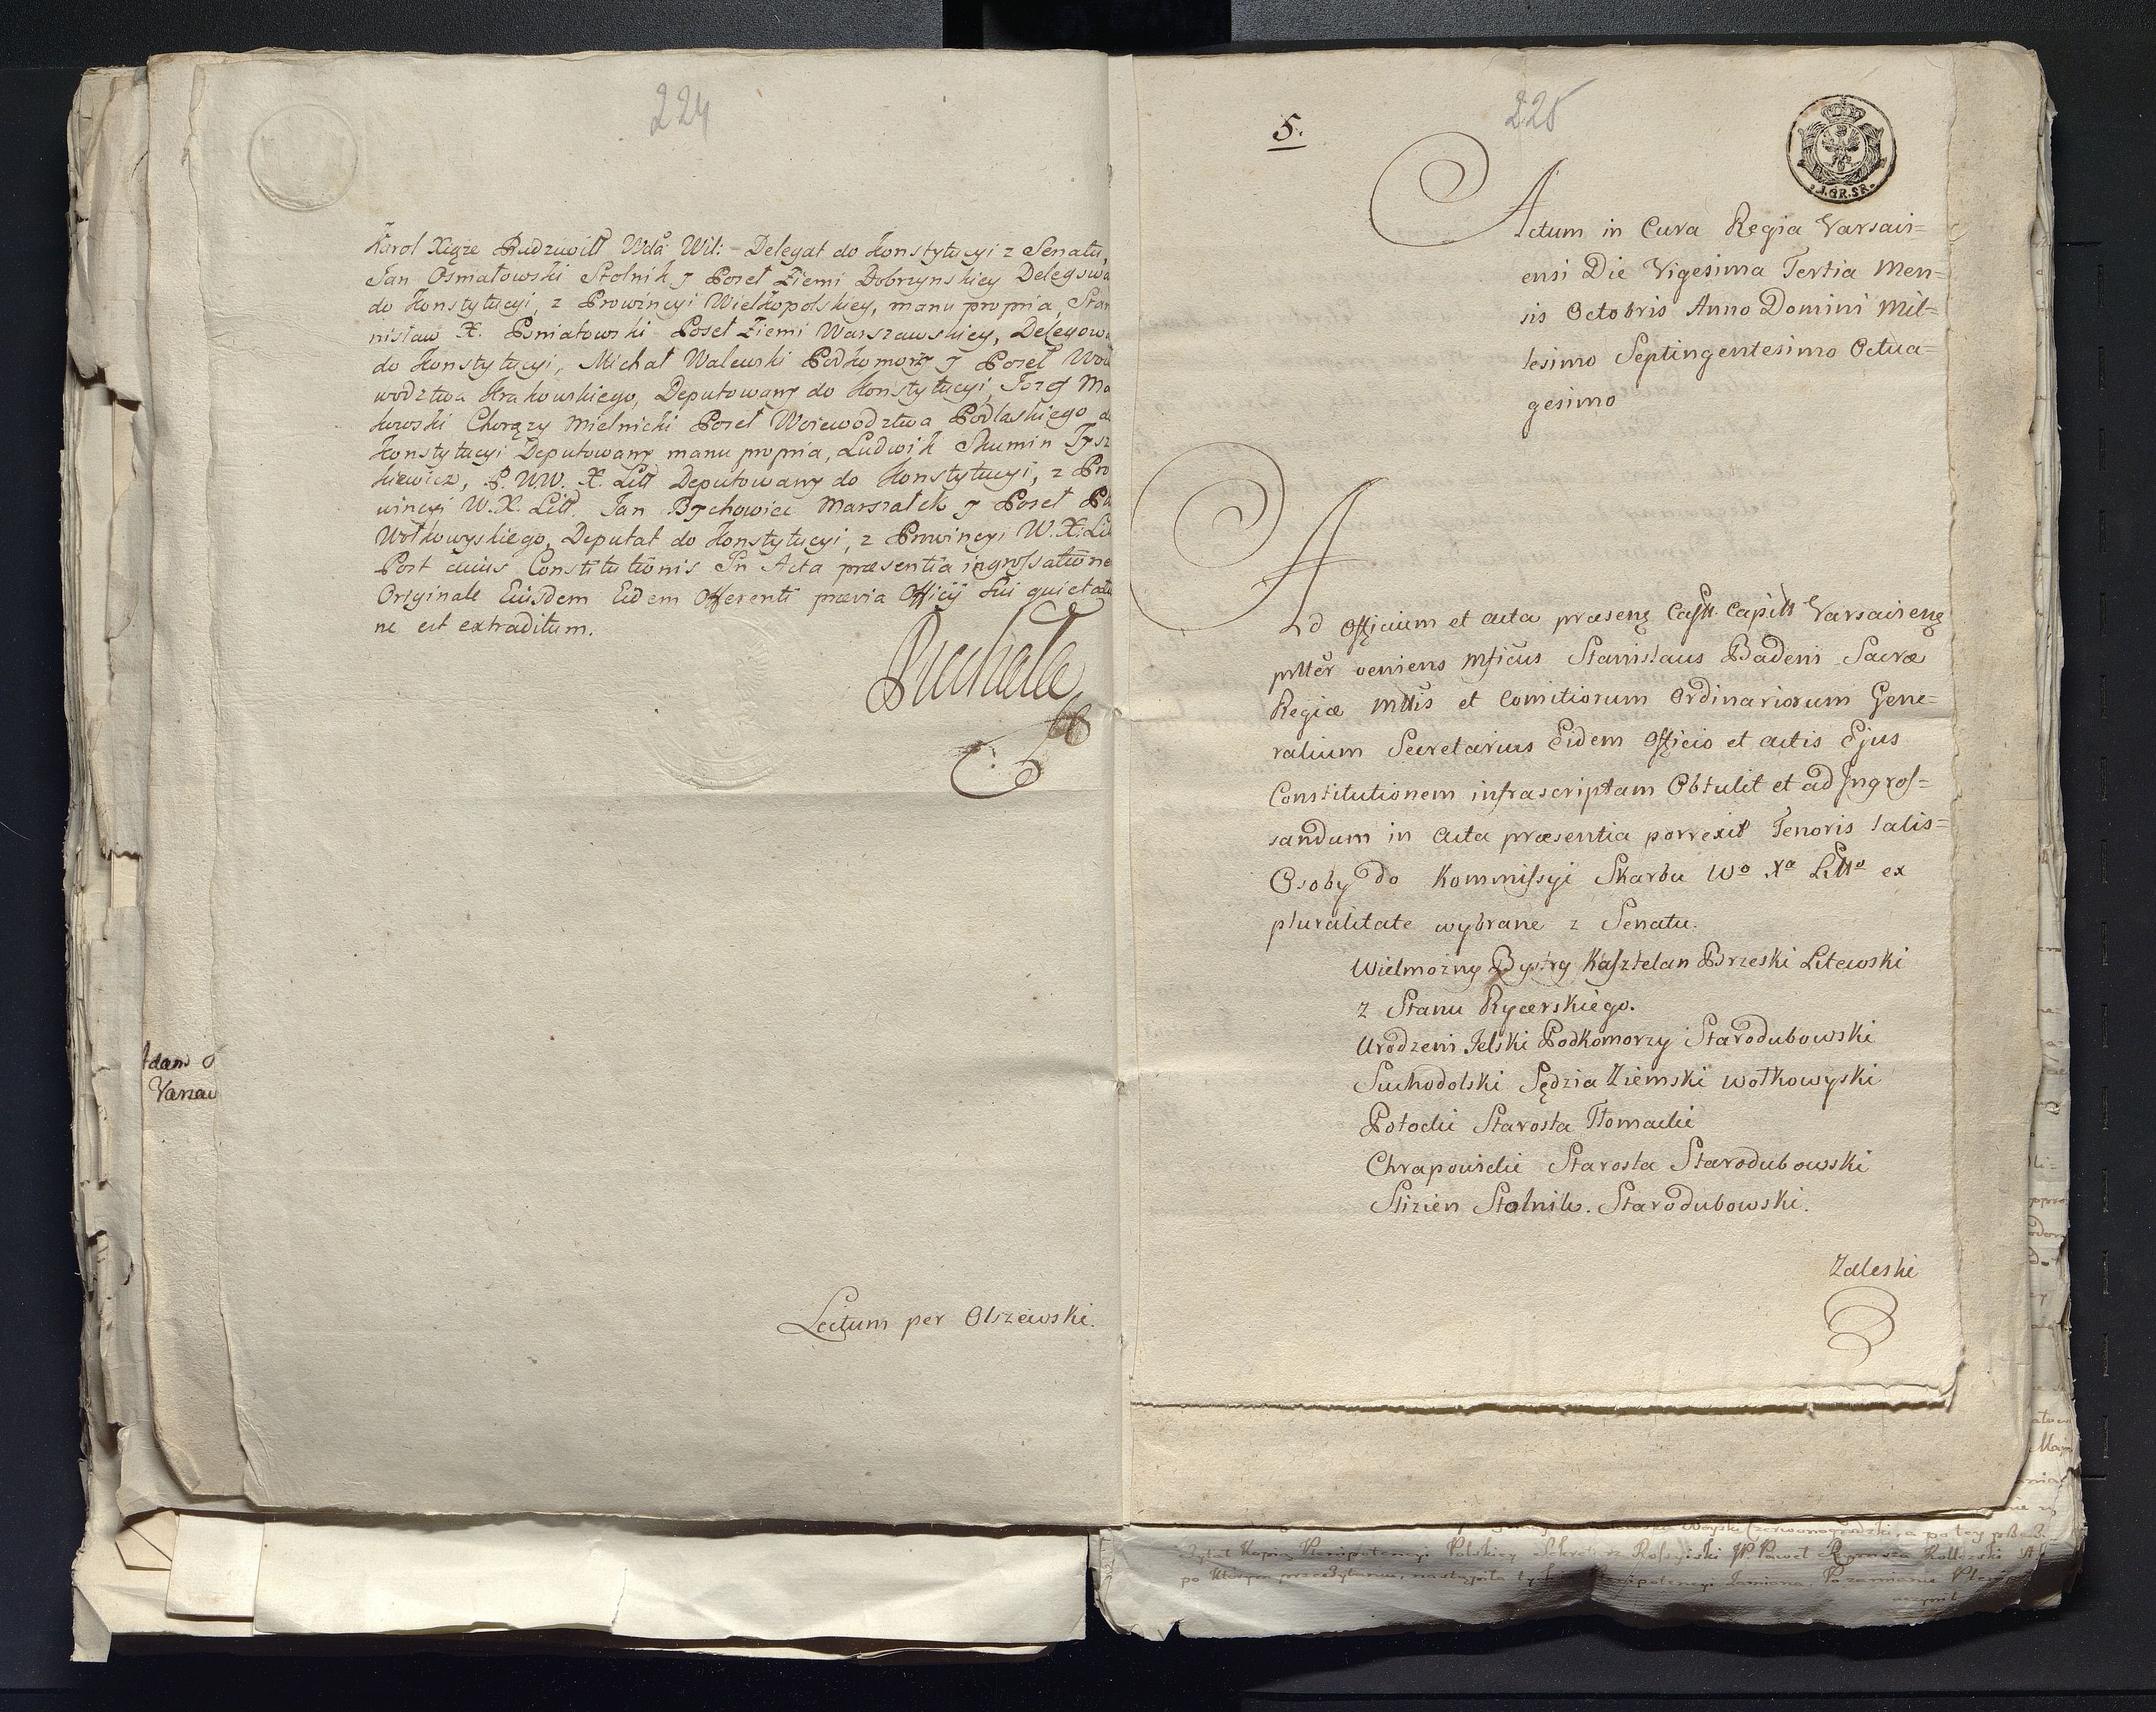 224
Karol Xiąże Radziwiłł Wdā Wil: - Delegat do Konstytucyi z Senatu,
Jan Osmałowski Stolnik y Poseł Ziemi Dobrzynskiey Delegowa
do Konstytucyi, z Prowincyi Wielkopolskiey, manu propria, Sta
nisław X. Poniatowski Poseł Ziemi Warszawskiey, Delegow
do Konstytucyi, Michał Walewski Podkomorzy y Poseł Woie
wodztwa Krakowskiego, Deputowany do Konstytucyi, Jozef Ma
kowski Chorąży Mielnicki Poseł Wojewodztwa Podlaskiego d
Konstytucyi Deputowany manu propria, Ludwik Skumin Tysz
kiewicz, P. WW. X. Litt Deputowany do Konstytucyi, z Pro
wincyi W.X. Litt. Jan Bychowiec Marszałek y Poseł P
Wołkowyskiego, Deputat do Konstytucyi, z Prowincyi W.X. Li
Post cuius Constitutionis In Acta præsentia ingrossatione
Originale Eiusdem Eidem Offerenti prævia Officij sui quietatio
ne est extraditum.
Lectum per Olszewski.
Adam
Varsav
5.
225
J.GR.SR.
Actum in Curia Regia Varsavi=
ensi Die Vigesima Tertia Men=
sis Octobris Anno Domini Mil=
lesimo Septingentesimo Octua=
gesimo
Ad Officium et acta præsenș Castr. Capitt Varsavienș
prtter veniens Mficus Stanislaus Badeni Sacræ
Regiæ Mttis et Comitiorum Ordinariorum Gene=
ralium Secretarius Eidem Officio et actis Ejus
Constitutionem infrascriptam Obtulit et ad Ingros=
sandum in acta præsentia porrexit Tenoris talis=
Osoby do Kommissyi Skarbu Wo Xa Litto ex
pluralitate wybrane z Senatu.
Wielmożny Bystry Kasztelan Brzeski Litewski
z Stanu Rycerskiego.
Urodzeni Jelski Podkomorzy Starodubowski
Suchodolski Sędzia Ziemski Wołkowyski
Potocki Starosta Tłomacki
Chrapowicki Starosta Starodubowski
Slizien Stolnik. Starodubowski.
Zaleski